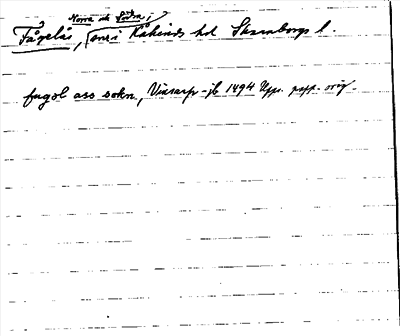 Norra och Södra,
Fågelås, sn i Kåkinds hd Skaraborgs l.
fugol ass sokn, Vinsarp-jb 1494 Upps. papp. orig.